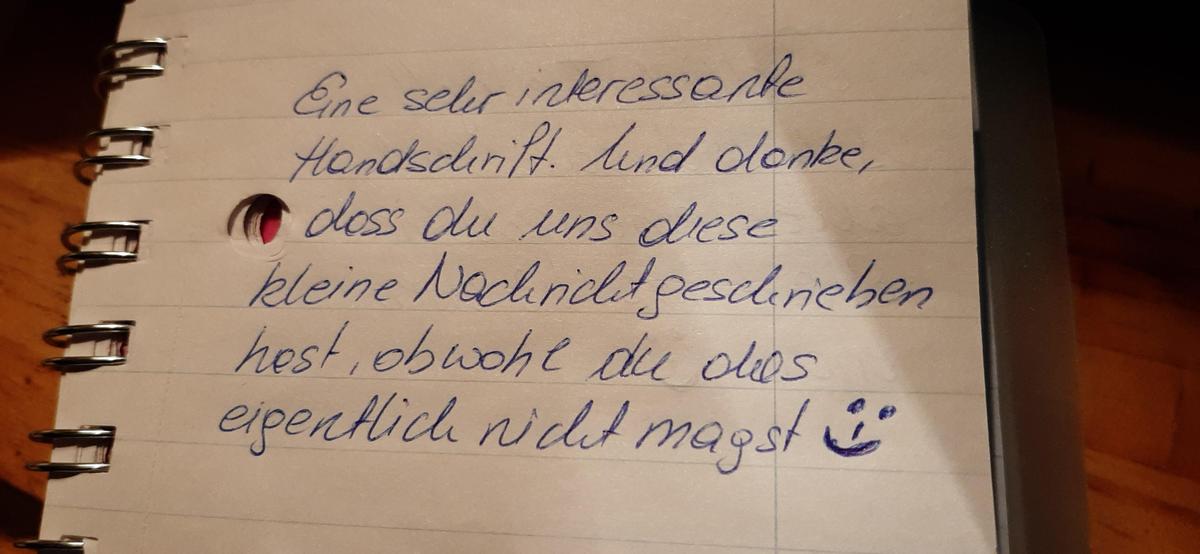 Eine sehr interessante
Handschrift. Und danke,
dass du uns diese
kleine Nachricht geschrieben
hast, obwohl du das
eigentlich nicht magst